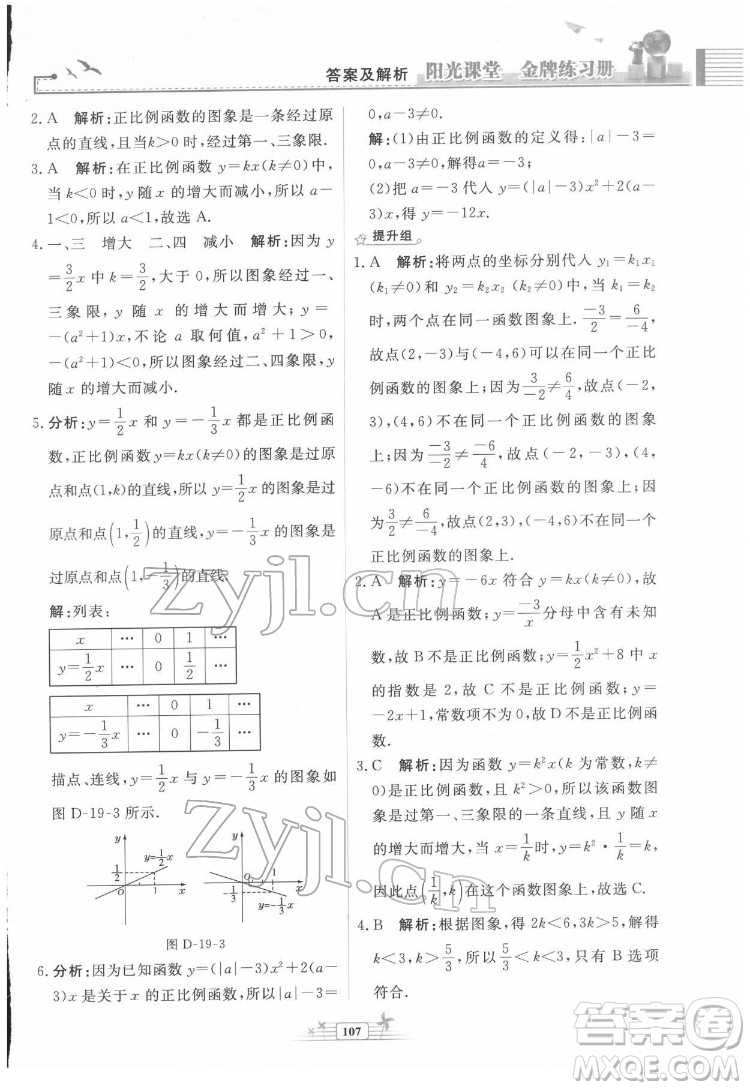 答案及解析 阳光课堂 金牌练习册
2. A 解析:正比例函数的图象是一条经过原
点的直线,且当k>0时,经过第一、三象限.
3. A 解析:在正比例函数 y=kx(k≠0)中,
当 k<0 时,y 随 x 的增大而减小,所以 a-
1<0,所以 a<1,故选 A.
4. 一、三 增大 二、四 减小 解析:函数 y
=3/2x 中 k=3/2,大于 0,所以图象经过一、
三象限,y 随 x 的增大而增大;y=
-(a²+1)x,不论 a 取何值,a²+1>0,
-(a²+1)<0,所以图象经过二、四象限,y
随 x 的增大而减小.
5. 分析:y=1/2x 和 y=-1/3x 都是正比例函
数,正比例函数 y=kx(k≠0)的图象是过
原点和点(1,k)的直线,所以 y=1/2x 的图象是过
原点和点(1,1/2)的直线,y=-1/3x 的图象是
过原点和点(1,-1/3)的直线.
解:列表:
x … 0 1 …
y=1/2x … 0 1/2 …
x … 0 1 …
y=-1/3x … 0 -1/3 …
描点、连线,y=1/2x 与 y=-1/3x 的图象如
图 D-19-3 所示.
y y=1/2x 1/2 O 1 x
y O 1 x -1/3 y=-1/3x
图 D-19-3
6. 分析:因为已知函数 y=(|a|-3)x²+2(a-
3)x 是关于 x 的正比例函数,所以|a|-3=
0,a-3≠0.
解:(1)由正比例函数的定义得:|a|-3=
0,a-3≠0,解得a=-3.
(2)把 a=-3 代入 y=(|a|-3)x²+2(a-
3)x,得 y=-12x.
提升组
1. A 解析:将两点的坐标分别代入 y₁=k₁x₁
(k₁≠0)和 y₂=k₂x₂(k₂≠0)中,当 k₁=k₂
时,两个点在同一函数图象上.-3/2=6/-4,
故点(2,-3),(-4,6)在同一个正比
例函数的图象上;因为3/-2≠6/4,故点(-2,
3),(4,6)不在同一个正比例函数的图象
上;因为-3/-2≠-6/4,故点(-2,-3),(4,
-6)不在同一个正比例函数的图象上;因
为3/2≠6/-4,故点(2,3),(-4,6)不在同一个
正比例函数的图象上.
2. A 解析:y=-6x 符合 y=kx(k≠0),故
A 是正比例函数;y=-3/x 分母中含有未知
数,故 B 不是正比例函数;y=1/2x²+8 中 x
的指数是 2,故 C 不是正比例函数;y=
-2x+1,常数项不为 0,故 D 不是正比例函
数.
3. C 解析:因为函数 y=k²x(k 为常数,k≠
0)是正比例函数,k²>0,所以该函数图
象是过第一、三象限的一条直线,y 随 x 的
增大而增大,当 x=1/k时,y=k²·1/k=k,
因此点(1/k,k)在这个函数图象上,故选 C.
4. B 解析:根据图象,得 2k<6,3k>5,解得
k<3,k>5/3,所以5/3<k<3,只有 B 选项
符合.
107
Zyjl.cn
Zyjl.cn
答案圈
MXQE.COM